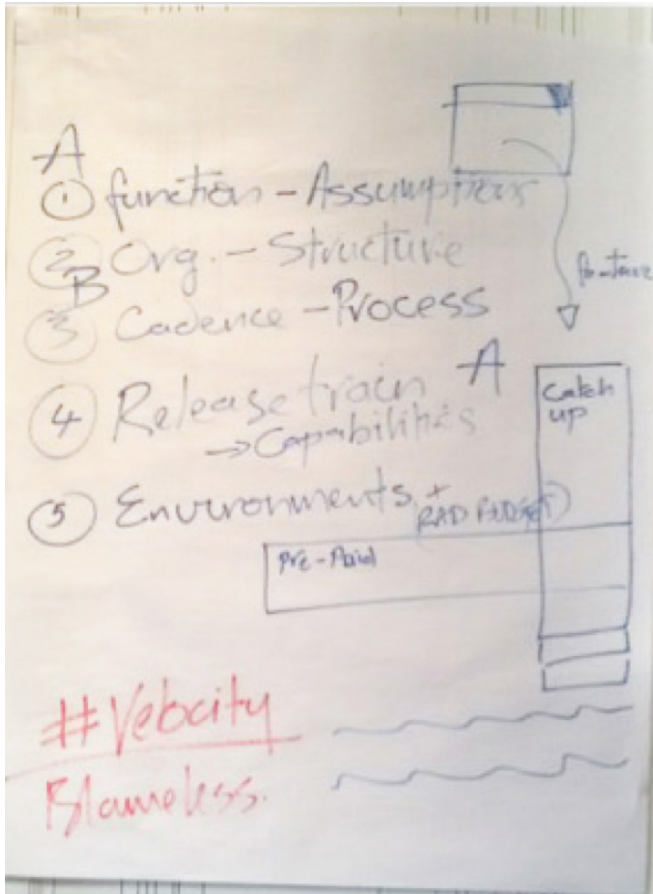 A
① function - Assumptions
② Org. - Structure
B
③ Cadence - Process
④ Release train A
→ Capabilities
⑤ Environments +
Catch
up
Pre-Paid
#Velocity
Blameless.